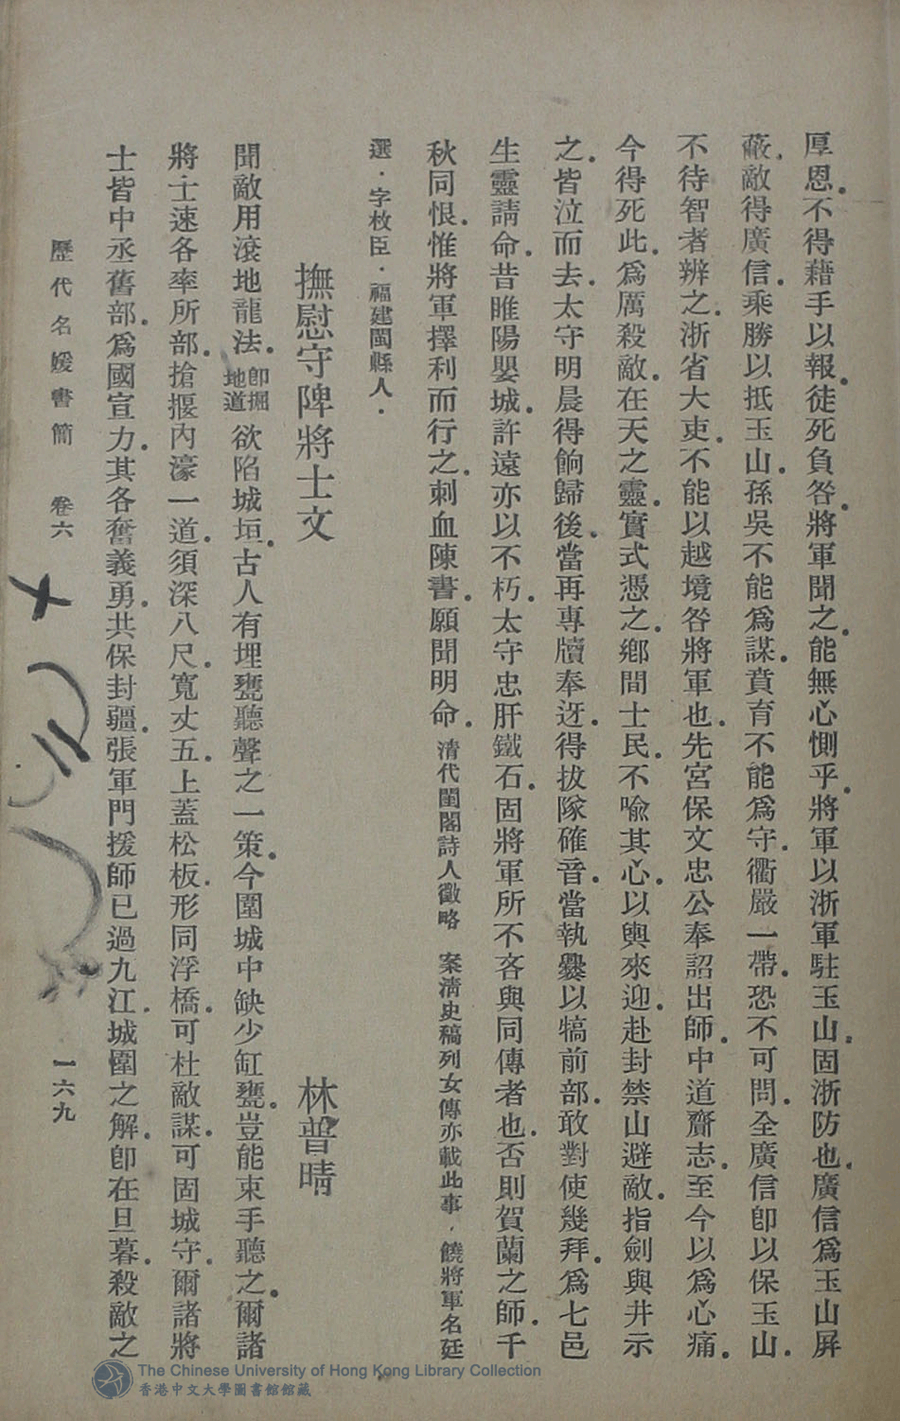 厚恩。不得藉手以報。徒死負咎。將軍聞之。能無心惻乎。將軍以浙軍駐玉山。固浙防也。廣信爲玉山屏
蔽。敵得廣信。乘勝以抵玉山。孫吳不能爲謀。賁育不能爲守。衢嚴一帶。恐不可問。全廣信卽以保玉山。
不待智者辨之。浙省大吏。不能以越境咎將軍也。先宮保文忠公奉詔出師。中道齎志。至今以爲心痛。
今得死此。爲厲殺敵。在天之靈。實式憑之。鄉間士民。不喩其心。以輿來迎。赴封禁山避敵。指劍與井示
之。皆泣而去。太守明晨得餉歸後。當再專牘奉迓。得拔隊確音。當執爨以犒前部。敢對使幾拜。爲七邑
生靈請命。昔睢陽嬰城。許遠亦以不朽。太守忠肝鐵石。固將軍所不吝與同傳者也。否則賀蘭之師。千
秋同恨。惟將軍擇利而行之。刺血陳書。願聞明命。淸代閨閣詩人徵略 案淸史稿列女傳亦載此事，饒將軍名廷
選．字枚臣．福建閩縣人．
撫慰守陴將士文 林普晴
聞敵用滾地龍法。卽掘地道欲陷城垣。古人有埋甕聽聲之一策。今圍城中缺少缸甕。豈能束手聽之。爾諸
將士速各率所部。搶揠內濠一道。須深八尺。寬丈五。上蓋松板。形同浮橋。可杜敵謀。可固城守。爾諸將
士皆中丞舊部。爲國宣力。其各奮義勇。共保封疆。張軍門援師已過九江。城圍之解。卽在旦暮。殺敵之
歷代名媛書簡 卷六 一六九
The Chinese University of Hong Kong Library Collection
香港中文大學圖書館館藏